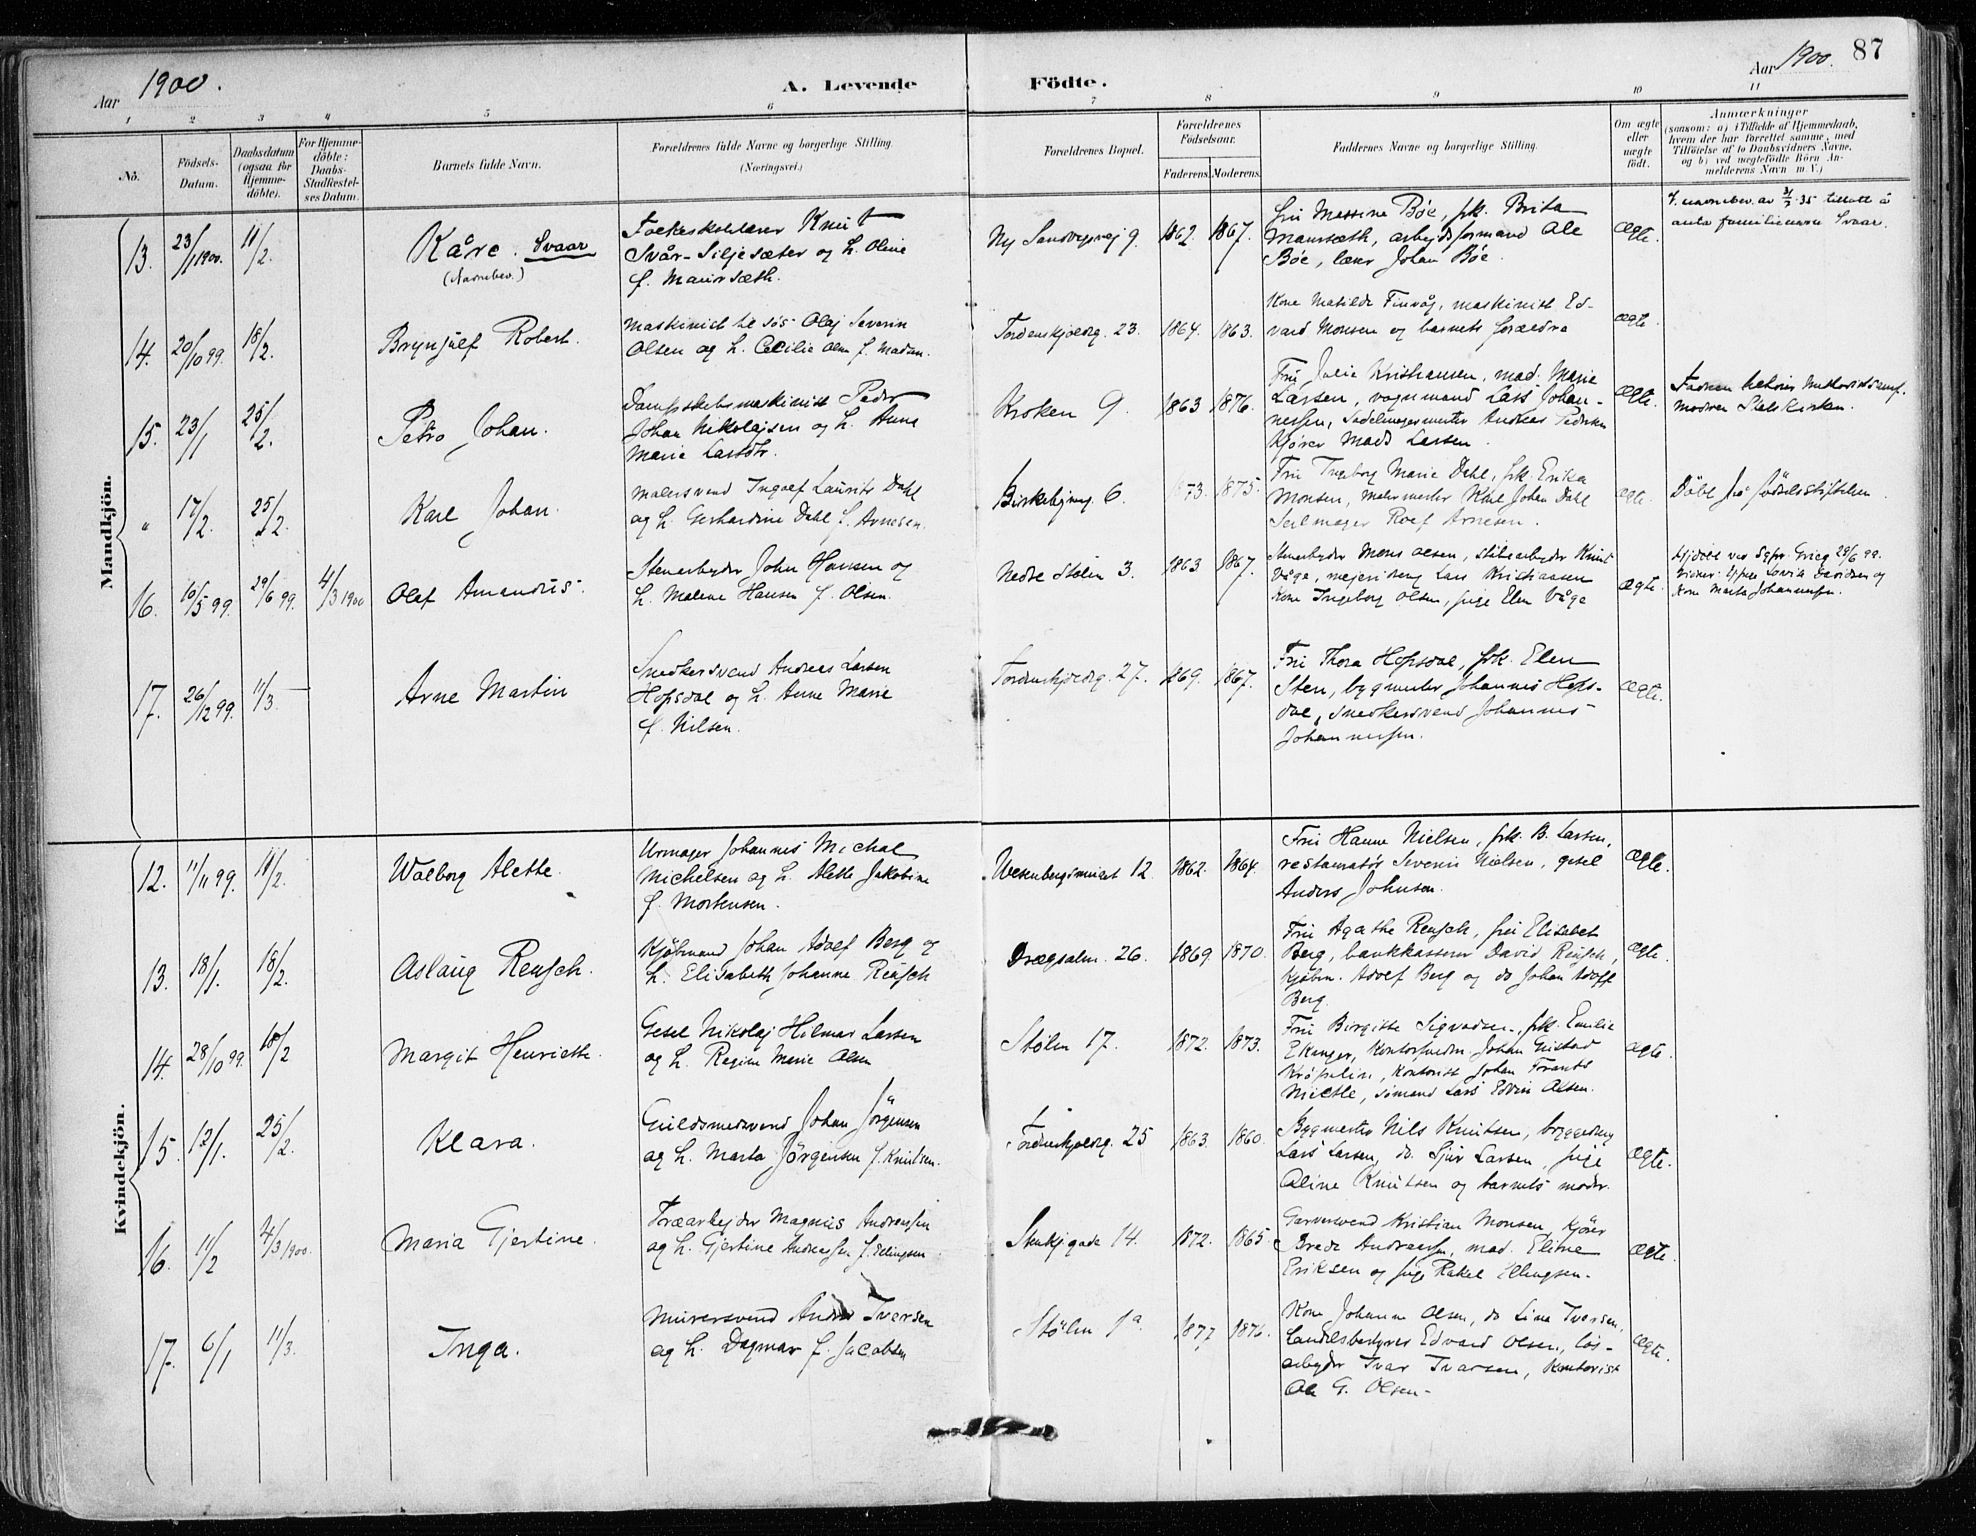 Aar 1900.
A. Levende
Födte.
Aar 1900.
87
1 2 3 4 5 6 7 8 9 10 11
No.
Födsels-Datum.
Daabsdatum (ogsaa for Hjemme-döbte).
For Hjemme-döbte: Daabs-Stadfæstel-ses Datum.
Barnets fulde Navn.
Forældrenes fulde Navne og borgerlige Stilling. (Næringsvei.)
Forældrenes Bopæl.
Forældrenes Födselsaar.
Faderens. Moderens.
Faddernes Navne og borgerlige Stilling.
Om ægte eller uægte födt.
Anmærkninger
(saasom: a) i Tilfælde af Hjemmedaab,
hvem der har forrettet samme, med
Tilföielse af to Daabsvidners Navne,
og b) ved uegtefödte Börn An-
melderens Navn m. V.)
Mandkjön.
13. 23/1 1900. 11/2 Kåre. Svaar
(Navnebev.)
Folkeskolelærer Knut
Svår-Siljesæter og h. Oline
f. Maursæth.
Ny Sandvigsvej 9. 1862. 1867.
Fru Massina Böe, frk. Brita
Maursæth, arbejdsformand Ole
Böe, lærer Johan Böe.
Ægte.
F. navnebev. av 3/7 35 tillatt å
anta familienavn Svaar.
14. 20/10 99. 18/2. Brynjulf Robert.
Maskinist til søs Olaj Severin
Olsen og h. Cecilie Olsen f. Madsen.
Tordenskjoldsg. 23. 1864. 1863.
Kone Matilde Finvåg, maskinist Ed-
vard Monsen og barnets forældre
Ægte.
15. 23/1 25/2. Petro Johan.
Dampskibsmaskinist Peder
Johan Nikolajsen og h. Anna
Marie Larsdtr.
Kroken 9. 1863 1876.
Fru Julie Kristiansen, mad. Marie
Larsen, vognmand Lars Johan-
nessen, Sadelmagermester Andreas Pedersen
kjører Mads Larsen.
Ægte.
Moderen Statskirken.
" 17/2. 25/2. Karl Johan.
Malersvend Ingolf Laurits Dahl
og h. Gerhardine Dahl f. Arnesen.
6. 1873. 1875.
Fru Ingeborg Marie Dahl, frk. Erika
Monsen, malermester Karl Johan Dahl
Seilmager Rolf Arnesen.
Ægte.
Döbt på Födselsstiftelsen
16. 10/5 99. 29/6 99. 4/3 1900 Olaf Amandus.
Stenarbejder John Hansen og
h. Malene Hansen f. Olsen.
Nedre Stølen 3. 1863 1867.
Stenarbejder Mons Olsen, Knut
Våge, Lars Kristiansen
Kone Ingeborg Olsen, pige Elen Våge
Ægte.
Hjdöbt ved Sgpr. Grieg 29/6 99.
Davidsen og
Kone Marta Johannessen.
17. 26/12 99. 11/3 Arne Martin
Snedkersvend Andreas Larsen
Hopsdal og h. Anne Marie
f. Nilsen.
Tordenskjoldsg. 27. 1869. 1867.
Fru Thora Hopsdal, frk. Elen
Sten, bygmester Johannes Hops-
dal, snedkersvend Johannes
Johannessen.
Ægte.
Kvindekjön.
12. 11/11 99. 11/2. Walborg Alette.
Urmager Johannes Michal
Michelsen og h. Alette Jakobine
f. Mortensen.
Wesenbergsmuet 12. 1862. 1864.
Fru Hanna Nielsen, frk. B. Larsen,
restauratør Severin Nielsen, gesel
Anders Johnsen.
Ægte.
13. 18/1. 18/2. Aslaug Reusch.
Kjöbmand Johan Adolf Berg og
h. Elisabeth Johanne Reusch
Drægsalm. 26. 1869. 1870.
Fru Agathe Reusch, fru Elisabet
Berg, bankkasserer David Reusch,
kjøbm. Adolf Berg og do Johan Adolf
Berg.
Ægte.
14. 28/10 99. 18/2 Margit Henriette.
Gesel Nikolaj Hilmar Larsen
og h. Regine Marie Olsen
Stølen 17. 1872. 1873.
Fru Birgitte Sigvadsen, frk. Emilie
Ekanger, Kontorist Johan
Krøpelin, Kontorist Johan Frants
Mielle, sømand Lars Edvin Olsen.
Ægte.
15. 12/1. 25/2. Klara.
Guldsmedsvend Johan Jörgensen
og h. Marta Jörgensen f. Knutsen.
Tordenskjoldsg. 25 1863. 1860.
Bygmester Nils Knutsen, bryggedreng
Lars Larsen, do. Sjur Larsen, pige
Oline Knutsen og barnets moder.
Ægte.
16. 11/2 4/3 1900. Maria Gjertine.
Toræarbejder Magnus Andreassen
og h. Gjertine Andreassen f. Ellingsen
Stenkjgade 14. 1872. 1865.
Garversvend Kristian Monsen, kjører
Brede Andreassen, mad. Eline
Eriksen og pige Rakel Ellingsen.
Ægte.
17. 6/1 11/3. Inga.
Murersvend Andreas Iversen
og h. Dagmar f. Jacobsen
Stølen 1a. 1877. 1876.
Kone Johanna Olsen, do Lina Iversen,
Landelsbestyrer Edvard Olsen, løs-
arbejder Ivar Ivarsen, Kontorist
Ole G. Olsen.
Ægte.